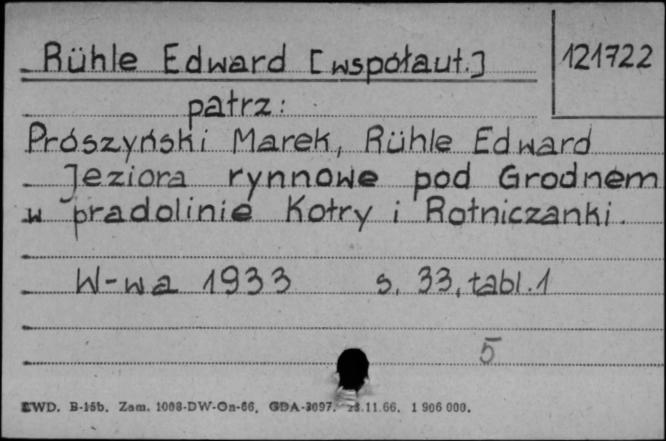 Rühle Edward [współaut.]
121722
patrz:
Prószyński Marek, Rühle Edward
Jeziora rynnowe pod Grodnem
w pradolinie Kotry i Rotniczanki.
W-wa 1933 s. 33, tabl. 1
5
B-15b. Zam. 1008-DW-On-66. GDA-3097. .11.66. 1 906 000.